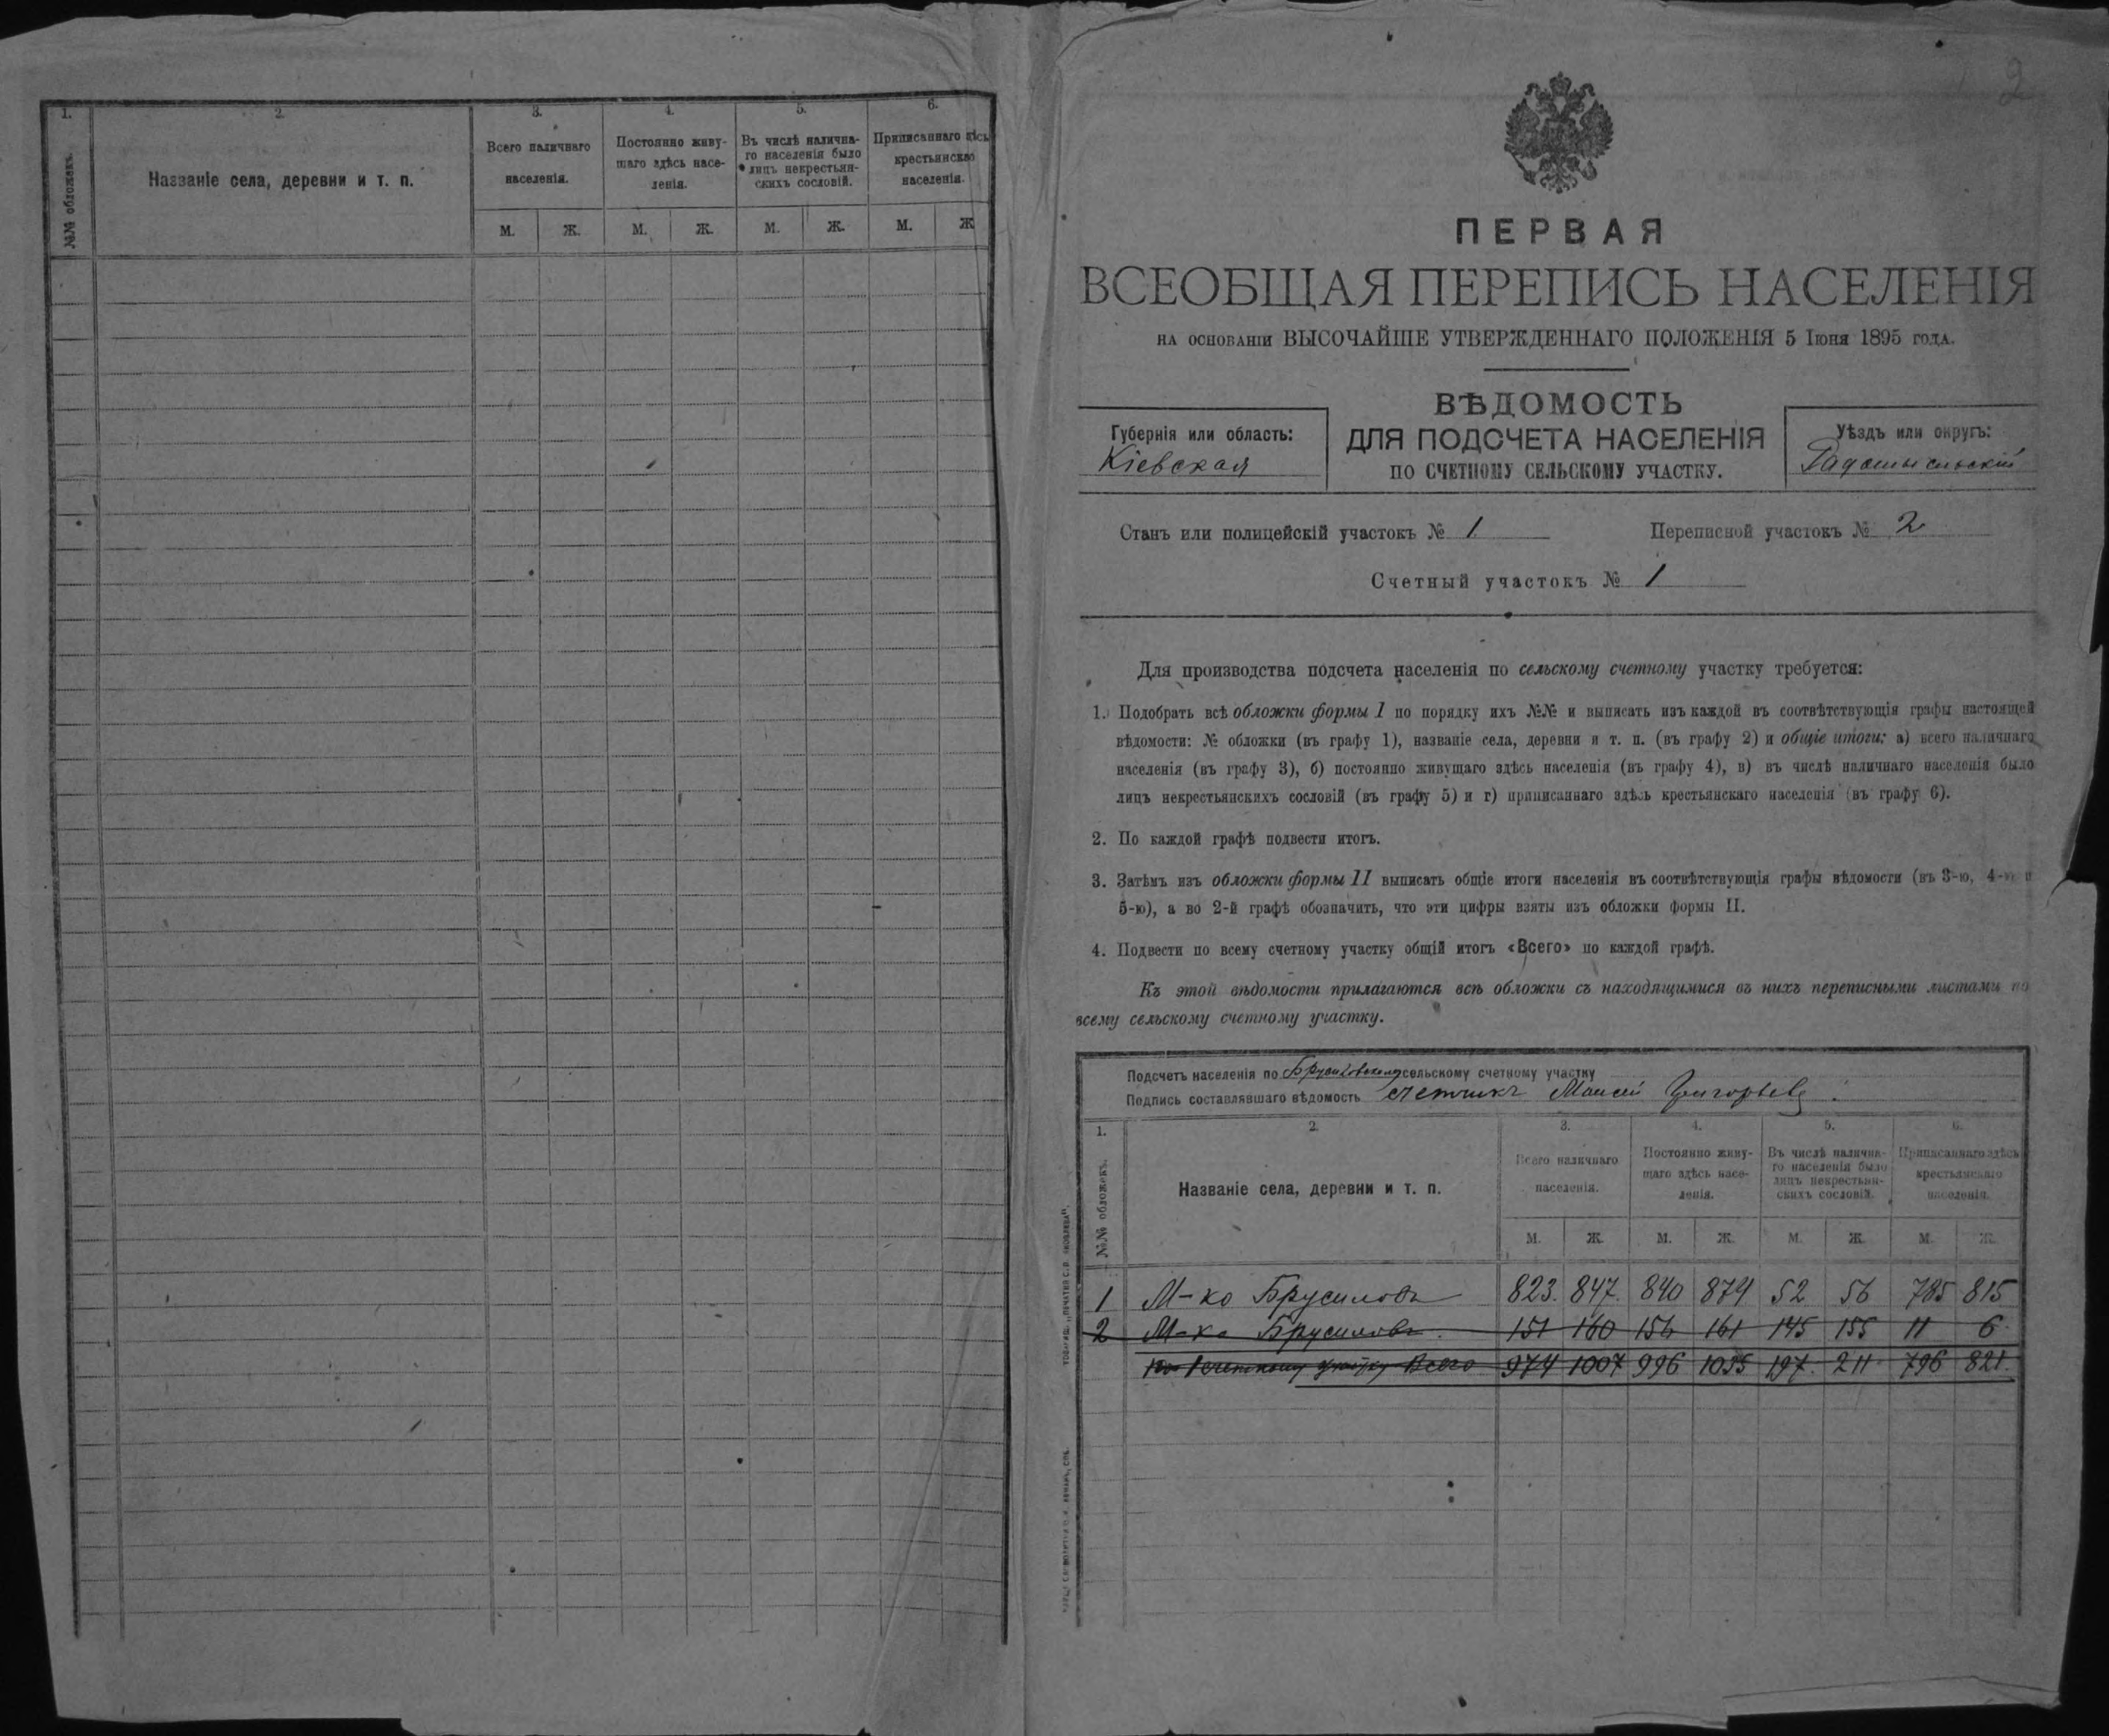 1.
2.
3.
4.
5.
6.
№№ обложекъ.
Названіе села, деревни и т. п.
Всего наличнаго
населенія.
Постоянно живу-
щаго здѣсь насе-
ленія.
Въ числѣ налична-
го населенія было
лицъ некрестьян-
скихъ сословій.
Приписаннаго здѣсь
крестьянскаго
населенія.
М. Ж. М. Ж. М. Ж. М. Ж.
2
ПЕРВАЯ
ВСЕОБЩАЯ ПЕРЕПИСЬ НАСЕЛЕНІЯ
НА ОСНОВАНІИ ВЫСОЧАЙШЕ УТВЕРЖДЕННАГО ПОЛОЖЕНІЯ 5 Іюня 1895 ГОДА.
ВѢДОМОСТЬ
ДЛЯ ПОДСЧЕТА НАСЕЛЕНІЯ
ПО СЧЕТНОМУ СЕЛЬСКОМУ УЧАСТКУ.
Губернія или область:
Кіевская
Уѣздъ или округъ:
Радомысльскій
Станъ или полицейскій участокъ № 1
Переписной участокъ № 2
Счетный участокъ № 1
Для производства подсчета населенія по сельскому счетному участку требуется:
1. Подобрать всѣ обложки формы I по порядку ихъ №№ и выписать изъ каждой въ соотвѣтствующія графы настоящей
вѣдомости: № обложки (въ графу 1), названіе села, деревни и т. п. (въ графу 2) и общіе итоги: а) всего наличнаго
населенія (въ графу 3), б) постоянно живущаго здѣсь населенія (въ графу 4), в) въ числѣ наличнаго населенія было
лицъ некрестьянскихъ сословій (въ графу 5) и г) приписаннаго здѣсь крестьянскаго населенія (въ графу 6).
2. По каждой графѣ подвести итогъ.
3. Затѣмъ изъ обложки формы II выписать общіе итоги населенія въ соотвѣтствующія графы вѣдомости (въ 3-ю, 4-ю и
5-ю), а во 2-й графѣ обозначить, что эти цифры взяты изъ обложки формы II.
4. Подвести по всему счетному участку общій итогъ «Всего» по каждой графѣ.
Къ этой вѣдомости прилагаются всѣ обложки съ находящимися въ нихъ переписными листами по
всему сельскому счетному участку.
Подсчетъ населенія по Брусиловскому сельскому счетному участку
Подпись составлявшаго вѣдомость счетчикъ Моисей Григорьевъ
1.
2.
3.
4.
5.
6.
№№ обложекъ.
Названіе села, деревни и т. п.
Всего наличнаго
населенія.
Постоянно живу-
щаго здѣсь насе-
ленія.
Въ числѣ налична-
го населенія было
лицъ некрестьян-
скихъ сословій.
Приписаннаго здѣсь
крестьянскаго
населенія.
М. Ж. М. Ж. М. Ж. М. Ж.
1 М-ко Брусиловъ 823. 847. 840 874 52 56 785 815
2 М-ко Брусиловъ. 151 160 156 161 145 155 11 6
По 1 счетному участку Всего 974 1007 996 1035 197. 211 796 821.